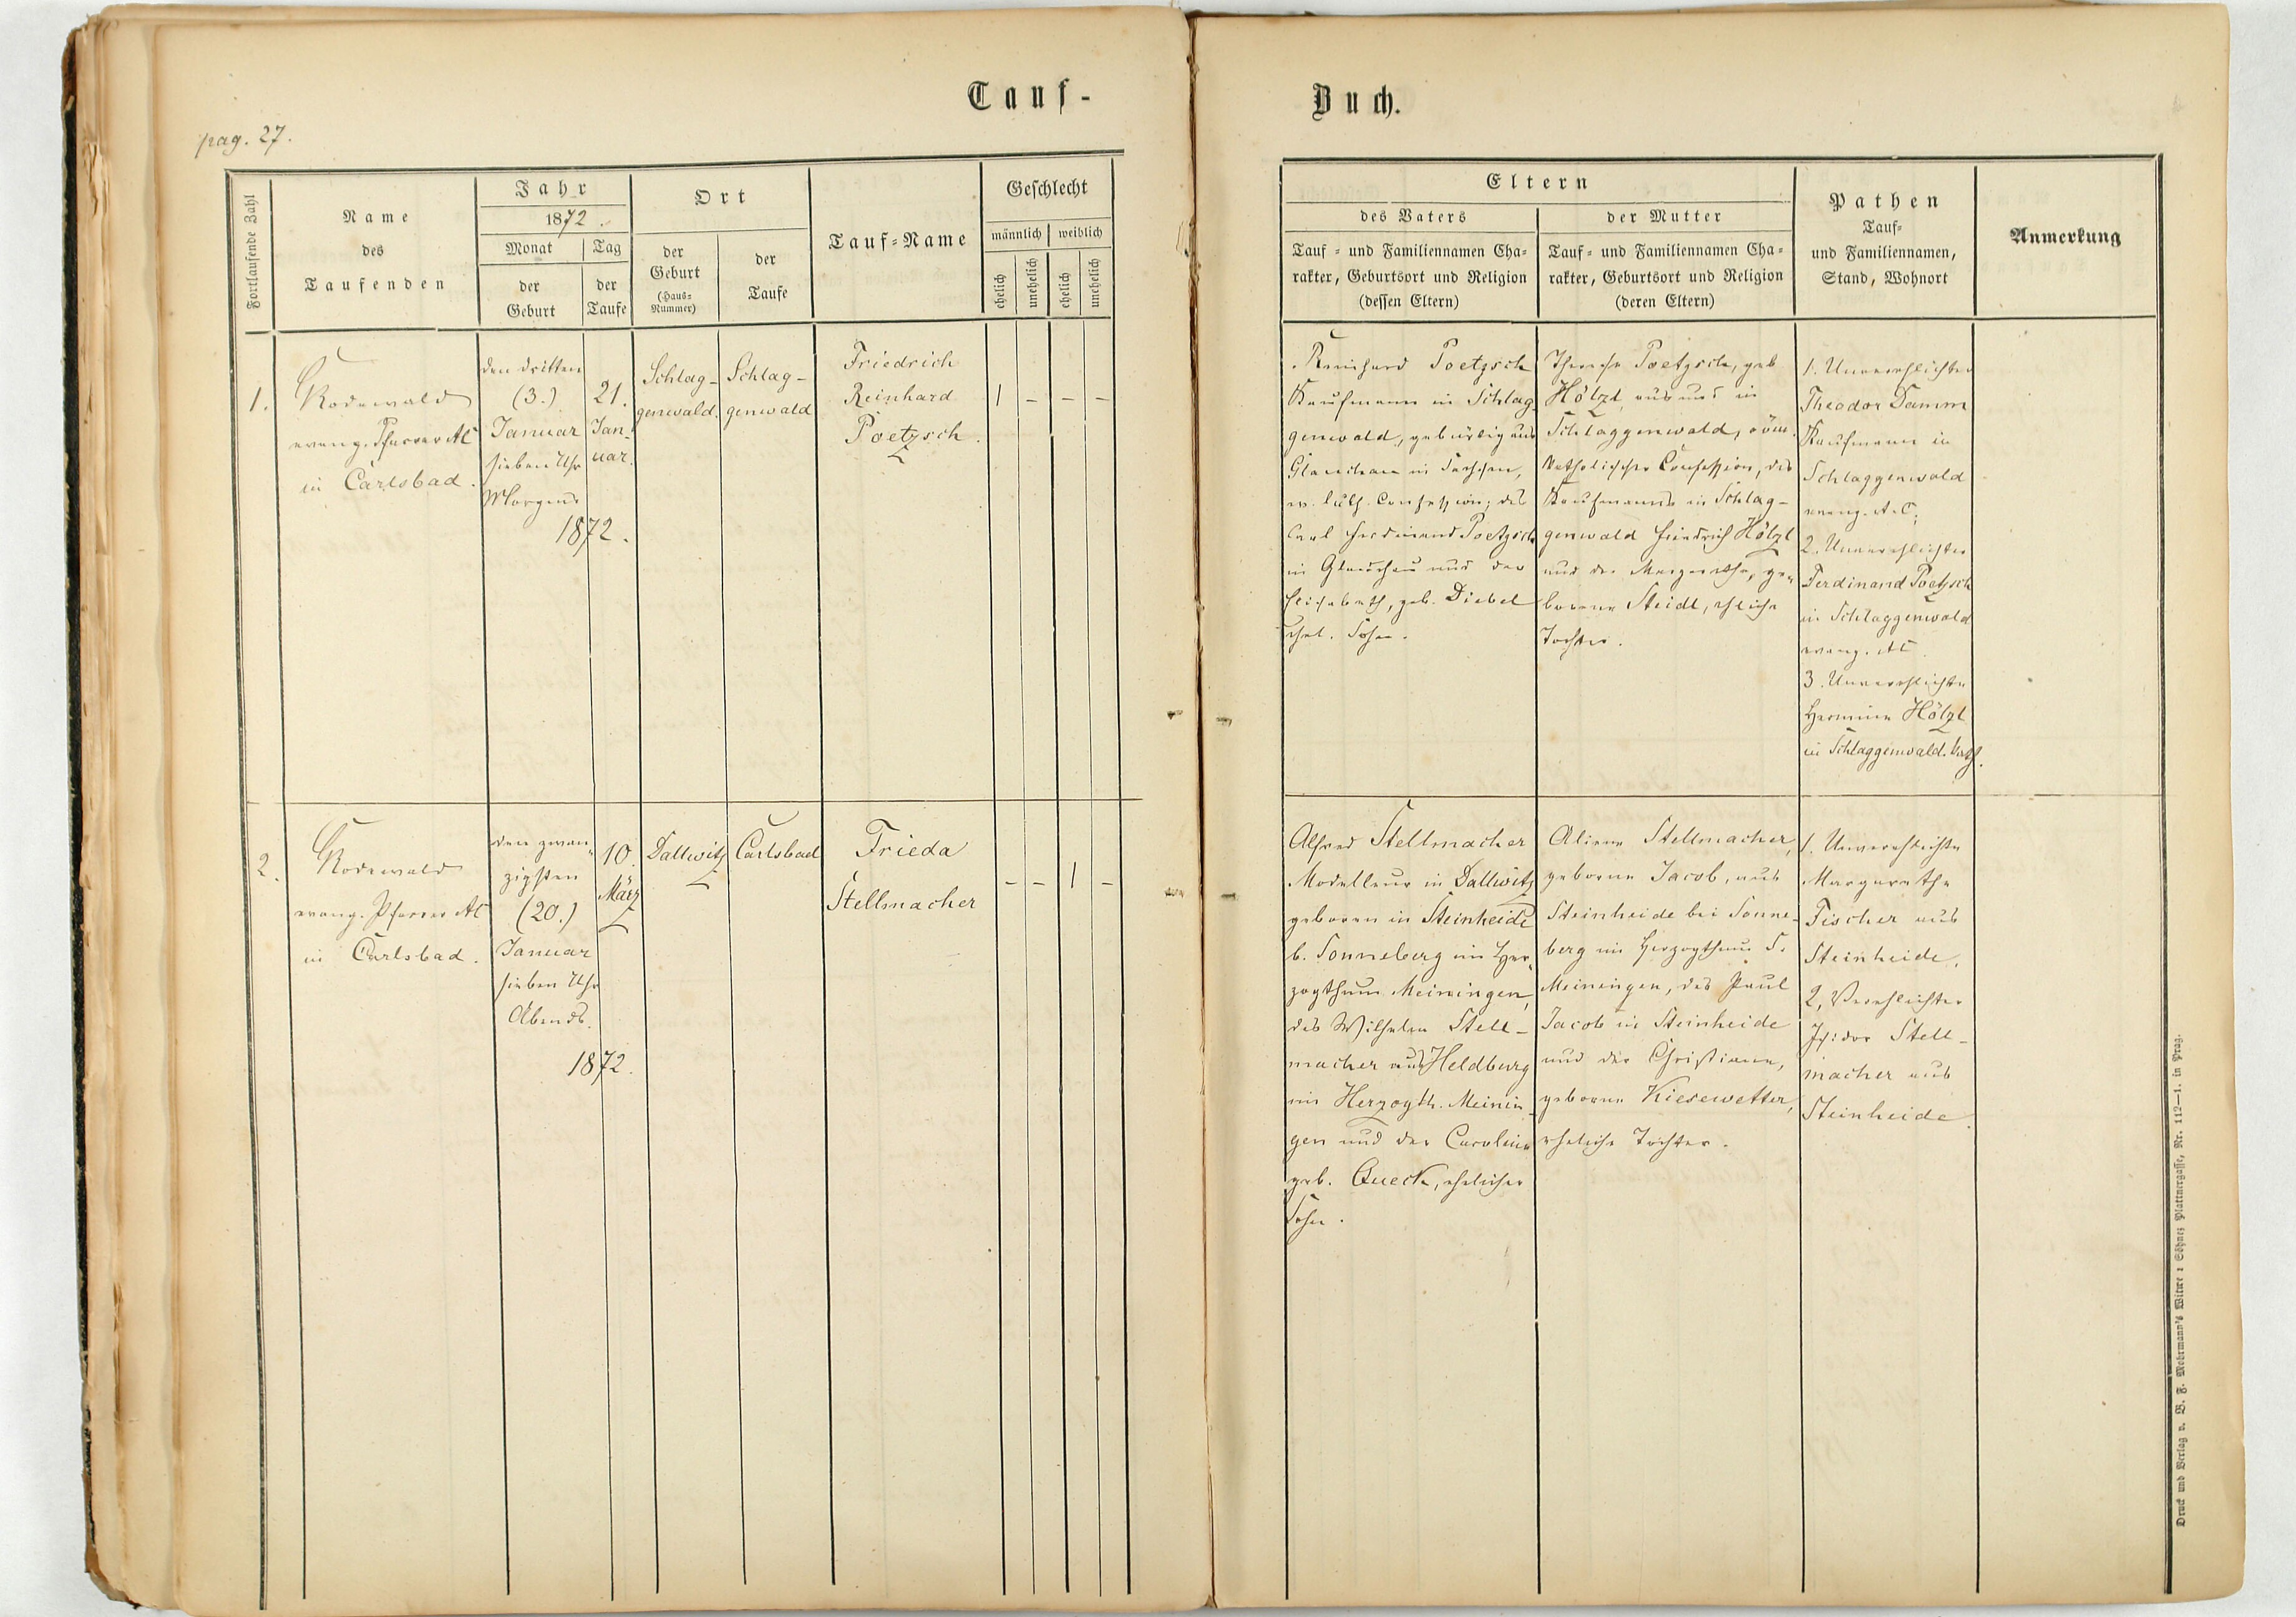 Tauf-
Buch.
pag. 27.
Fortlaufende Zahl
Name
des
Taufenden
Jahr
1872.
Monat
der
Geburt
Tag
der
Taufe
Ort
der
Geburt
(Haus-
Nummer)
der
Taufe
Tauf-Name
Geschlecht
männlich
weiblich
ehelich
unehelich
ehelich
unehelich
Eltern
des Vaters
Tauf- und Familiennamen Cha-
rakter, Geburtsort und Religion
(dessen Eltern)
der Mutter
Tauf- und Familiennamen Cha-
rakter, Geburtsort und Religion
(deren Eltern)
Pathen
Tauf-
und Familiennamen,
Stand, Wohnort
Anmerkung
1.
Rodewald
evang. Pfarrer AC
in Carlsbad.
den dritten
(3.)
Januar
sieben Uhr
Morgens
1872.
21.
Jan-
uar.
Schlag-
genwald.
Schlag-
genwald
Friedrich
Reinhard
Poetzsch.
1 – – –
Reinhard Poetzsch
Kaufmann in Schlag-
genwald, gebürtig aus
Glauchau in Sachsen,
ev. luth. Confession; des
Carl Ferdinand Poetzsch
in Glauchau und der
Elisabeth, geb. Diebel
ehel. Sohn.
Therese Poetzsch, geb
Hölzl, aus und in
Schlaggenwald, röm.
katholischer Confession, des
Kaufmanns in Schlag-
genwald Friedrich Hölzl
und der Margarethe, ge-
borene Steidl, eheliche
Tochter.
1. Unverehlichter
Theodor Damm
Kaufmann in
Schlaggenwald
evang. A.C;
2. Unverehlichter
Ferdinand Poetzsch
in Schlaggenwald
evang. AC
3. Unverehlichte
Hermine Hölzl
in Schlaggenwald. kath.
2.
Rodewald
evang. Pfarrer AC
in Carlsbad.
den zwan-
zigsten
(20.)
Januar
sieben Uhr
Abends.
1872.
10.
März
Dallwitz
Carlsbad
Frieda
Stellmacher
– – 1 –
Alfred Stellmacher
Modelleur in Dallwitz
geboren in Steinheide
b. Sonneberg im Her-
zogthum Meiningen,
des Wilhelm Stell-
macher aus Heldburg
im Herzogth. Meinin-
gen und der Caroline
geb. Queck, ehelicher
Sohn.
Aliene Stellmacher,
geborne Jacob, aus
Steinheide bei Sonne-
berg im Herzogthum S.
Meiningen, des Paul
Jacob in Steinheide
und der Christiane,
geborne Kiesewetter,
eheliche Tochter.
1. Unverehlichte
Margarethe
Fischer aus
Steinheide.
2, Verehlichter
Isidor Stell-
macher aus
Steinheide
Druck und Verlag v. W. F. Mehrmann's Witwe & Söhne; Plattnergasse, Nr. 112—1. in Prag.